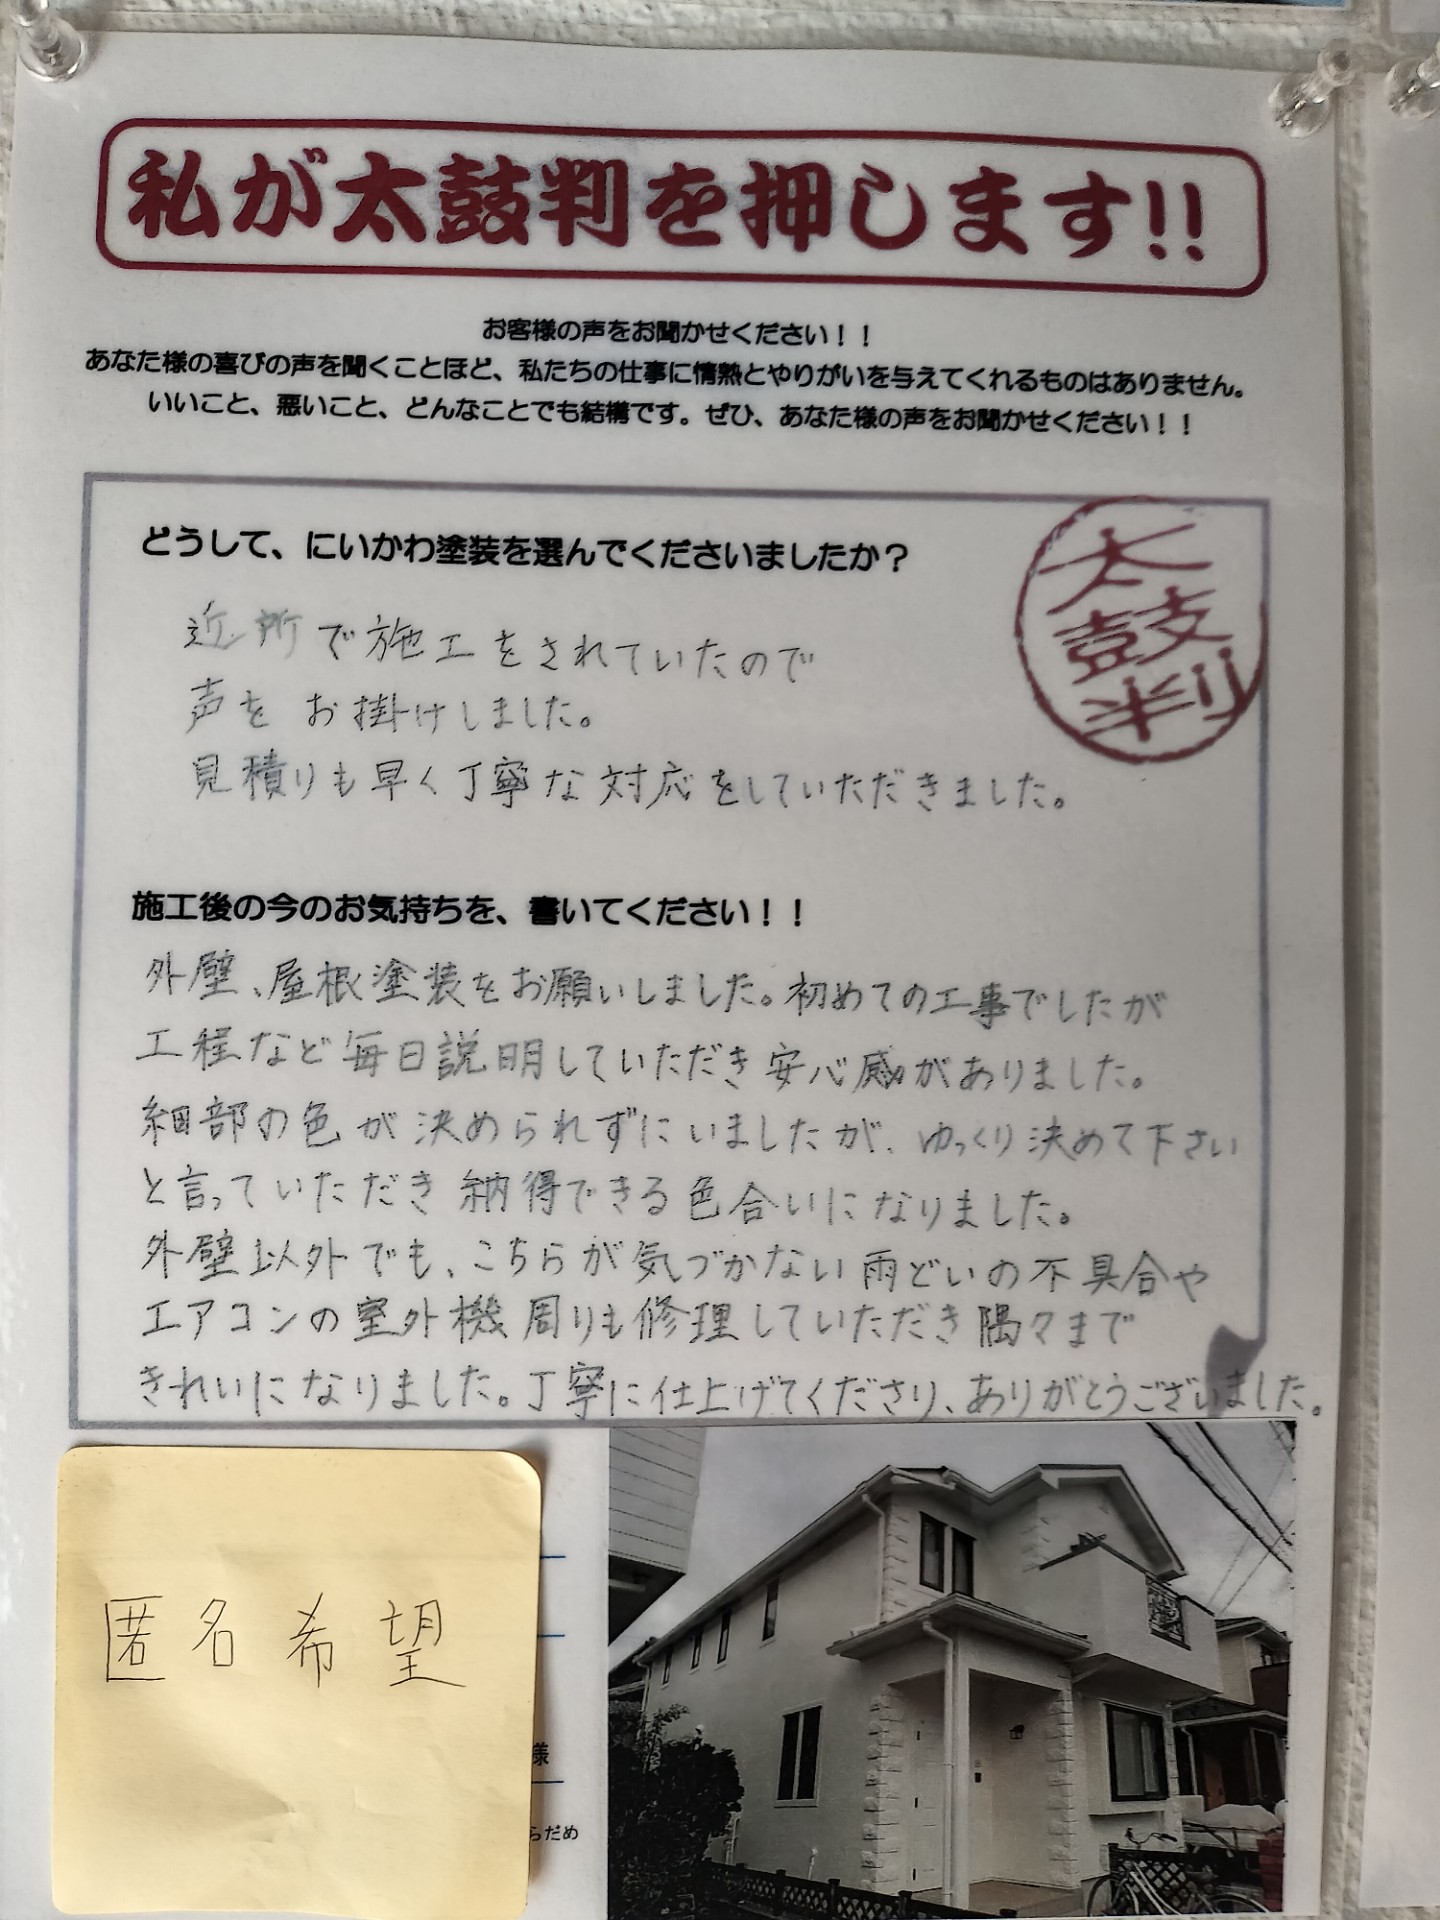 私が太鼓判を押します!!
お客様の声をお聞かせください！！
あなた様の喜びの声を聞くことほど、私たちの仕事に情熱とやりがいを与えてくれるものはありません。
いいこと、悪いこと、どんなことでも結構です。ぜひ、あなた様の声をお聞かせください！！
どうして、にいかわ塗装を選んでくださいましたか？
太鼓判
近所で施工をされていたので
声をお掛けしました。
見積りも早く丁寧な対応をしていただきました。
施工後の今のお気持ちを、書いてください！！
外壁、屋根塗装をお願いしました。初めての工事でしたが
工程など毎日説明していただき安心感がありました。
細部の色が決められずにいましたが、ゆっくり決めて下さい
と言っていただき納得できる色合いになりました。
外壁以外でも、こちらが気づかない雨どいの不具合や
エアコンの室外機周りも修理していただき隅々まで
きれいになりました。丁寧に仕上げてくださり、ありがとうございました。
匿名希望
様
らだめ